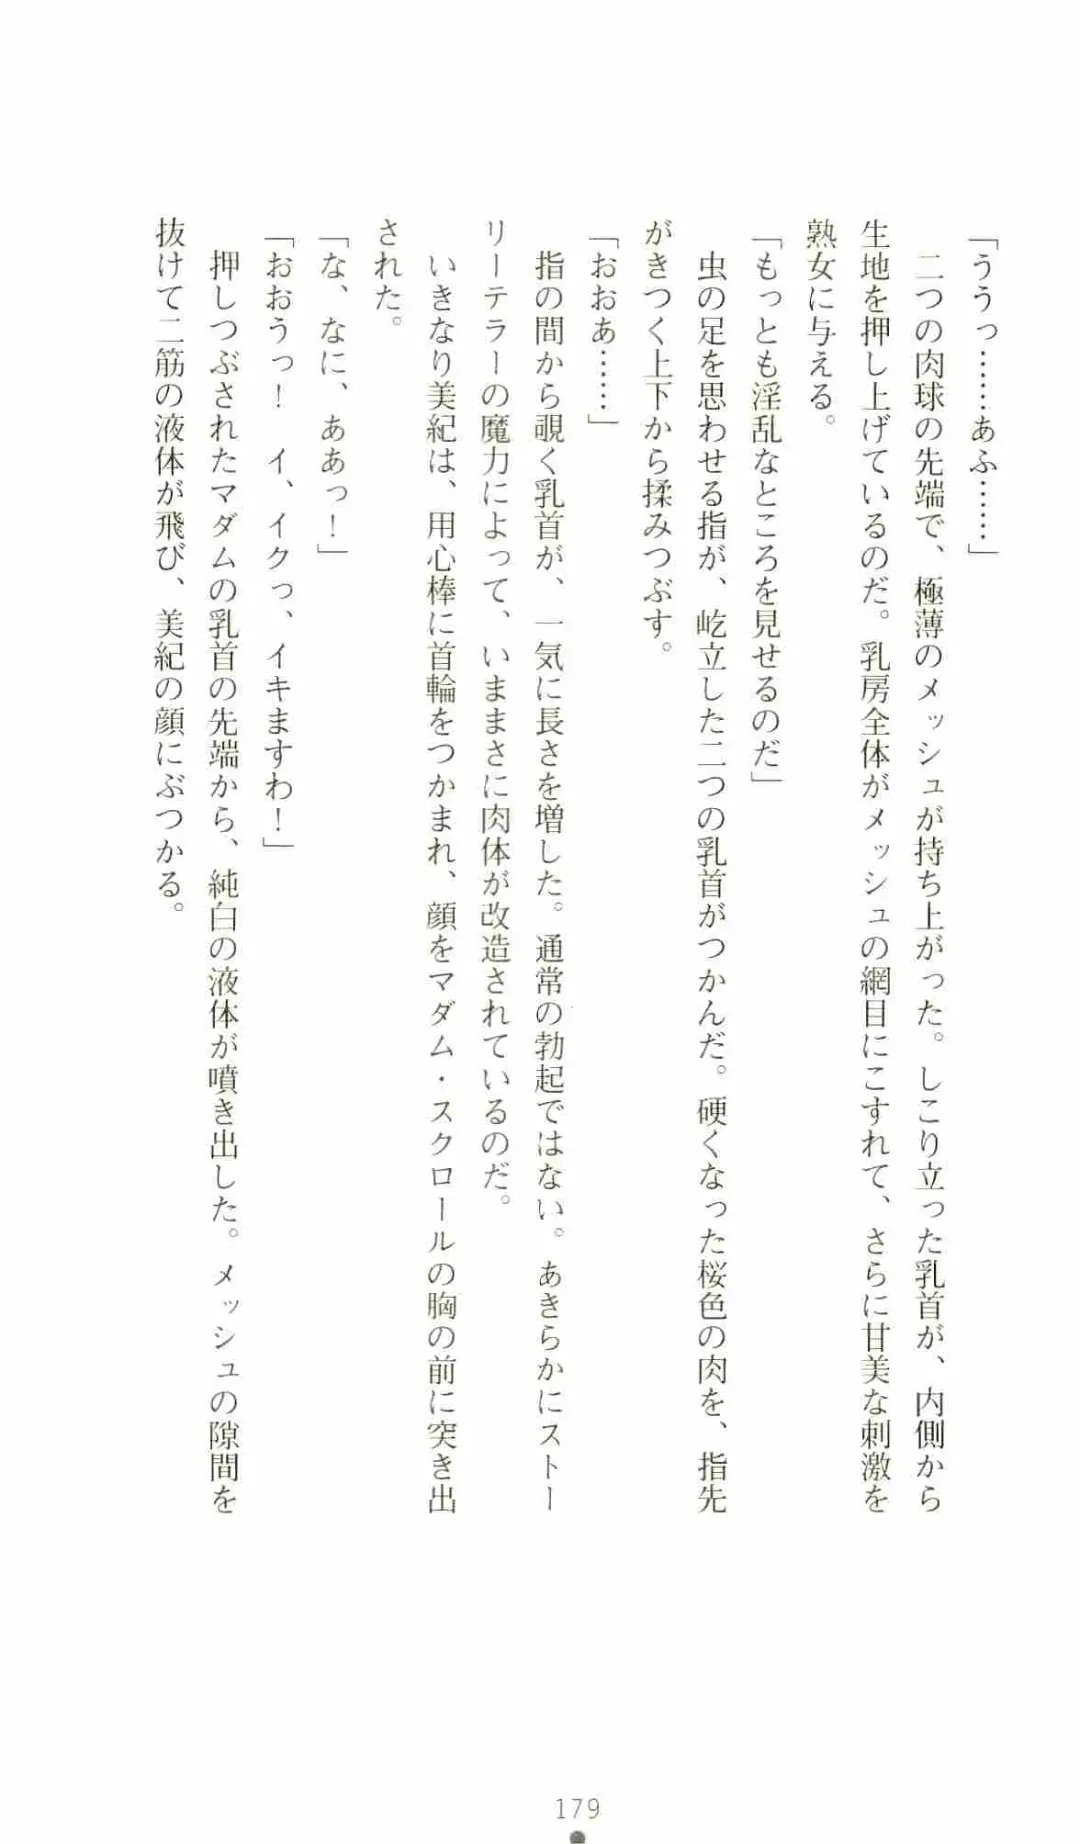 「ううっ……あふ……」
　二つの肉球の先端で、極薄のメッシュが持ち上がった。しこり立った乳首が、内側から
生地を押し上げているのだ。乳房全体がメッシュの網目にこすれて、さらに甘美な刺激を
熟女に与える。
「もっとも淫乱なところを見せるのだ」
　虫の足を思わせる指が、屹立した二つの乳首がつかんだ。硬くなった桜色の肉を、指先
がきつく上下から揉みつぶす。
「おおぁ……」
　指の間から覗く乳首が、一気に長さを増した。通常の勃起ではない。あきらかにストー
リーテラーの魔力によって、いままさに肉体が改造されているのだ。
　いきなり美紀は、用心棒に首輪をつかまれ、顔をマダム・スクロールの胸の前に突き出
された。
「な、なに、ああっ！」
「おおうっ！　イ、イクっ、イキますわ！」
　押しつぶされたマダムの乳首の先端から、純白の液体が噴き出した。メッシュの隙間を
抜けて二筋の液体が飛び、美紀の顔にぶつかる。
179